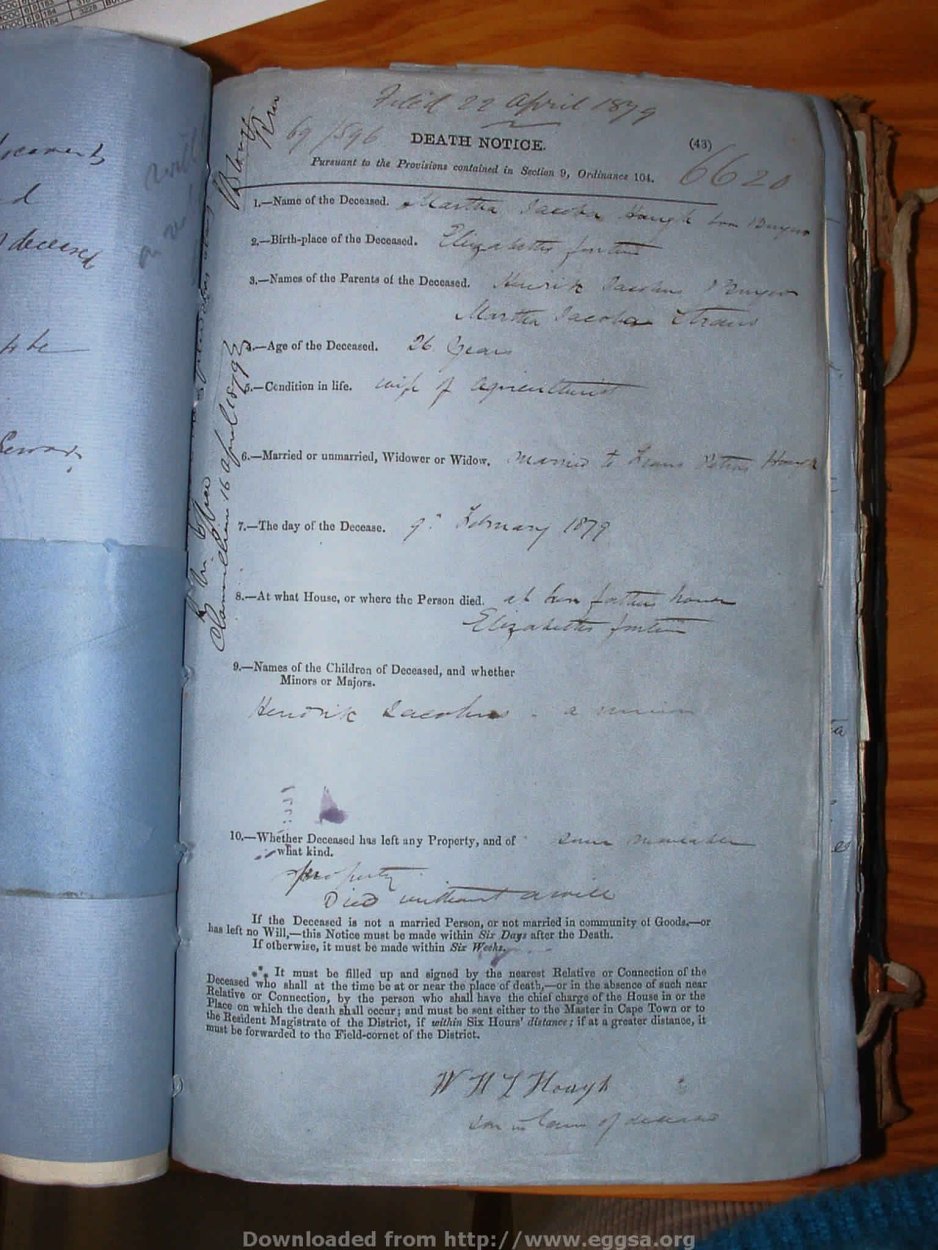 Filed 22 April 1879
69/7896
DEATH NOTICE.
(43)
6620
Pursuant to the Provisions contained in Section 9, Ordinance 104.
1.—Name of the Deceased. Martha Jacoba Hough born
2.—Birth-place of the Deceased. Elizabeths fontein
3.—Names of the Parents of the Deceased. Hendrik Jacobus
Martha Jacoba Strauss
4.—Age of the Deceased. 26 Years
5.—Condition in life. wife of Agriculturist
6.—Married or unmarried, Widower or Widow. Married to Petrus Hough
7.—The day of the Decease. 9 February 1879
8.—At what House, or where the Person died. at her fathers house
Elizabeths fontein
9.—Names of the Children of Deceased, and whether
Minors or Majors.
Hendrik Jacobus - a minor
10.—Whether Deceased has left any Property, and of
what kind. some moveable
property
Died without a will
If the Deceased is not a married Person, or not married in community of Goods,—or
has left no Will,—this Notice must be made within Six Days after the Death.
If otherwise, it must be made within Six Weeks.
*** It must be filled up and signed by the nearest Relative or Connection of the
Deceased who shall at the time be at or near the place of death,—or in the absence of such near
Relative or Connection, by the person who shall have the chief charge of the House in or the
Place on which the death shall occur; and must be sent either to the Master in Cape Town or to
the Resident Magistrate of the District, if within Six Hours' distance; if at a greater distance, it
must be forwarded to the Field-cornet of the District.
W H L Hough
son in law of deceased
Clanwilliam 16 April 1879
deceased
to be
Downloaded from http://www.eggsa.org